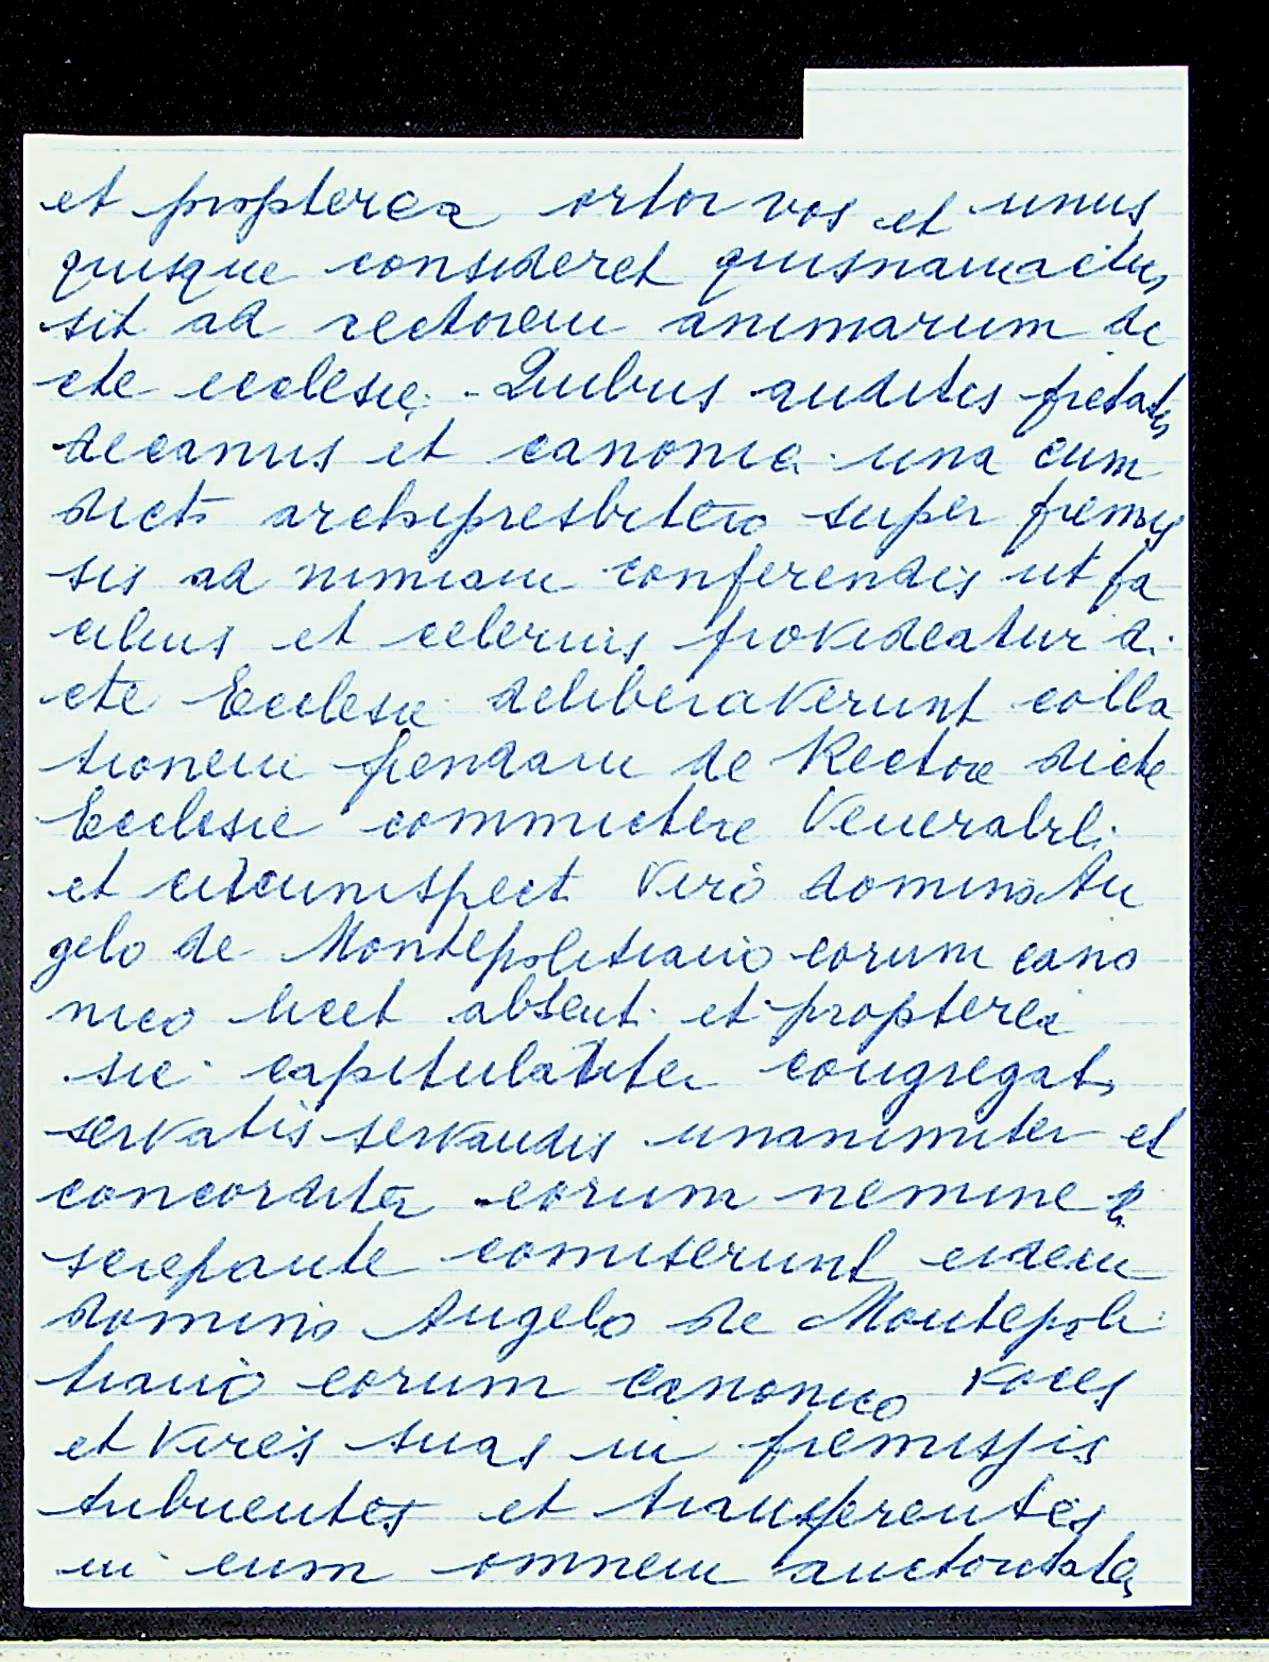 et propterea ortor vos et unus
quisque consideret quisnam actus
sit ad rectorem animarum di
cte ecclesie. Quibus auditis prefatus
decanus et canonici una cum
dicto archipresbitero super premis
sis ad nimiam conferendis ut fa
cilius et celerius provideatur di
cte Ecclesie deliberaverunt colla
tionem fiendam de Rectore dicte
Ecclesie commictere Venerabili
et circumspecto Viro domino An
gelo de Montepolitiano eorum cano
nico licet absenti et propterea
sic capitulariter congregati
servatis servandis unanimiter et
concorditer eorum nemine di
screpante comiserunt eidem
domino Angelo de Montepoli
tiano eorum canonico voces
et vires suas in premissis
tribuentes et transferentes
in eum omnem auctoritatem